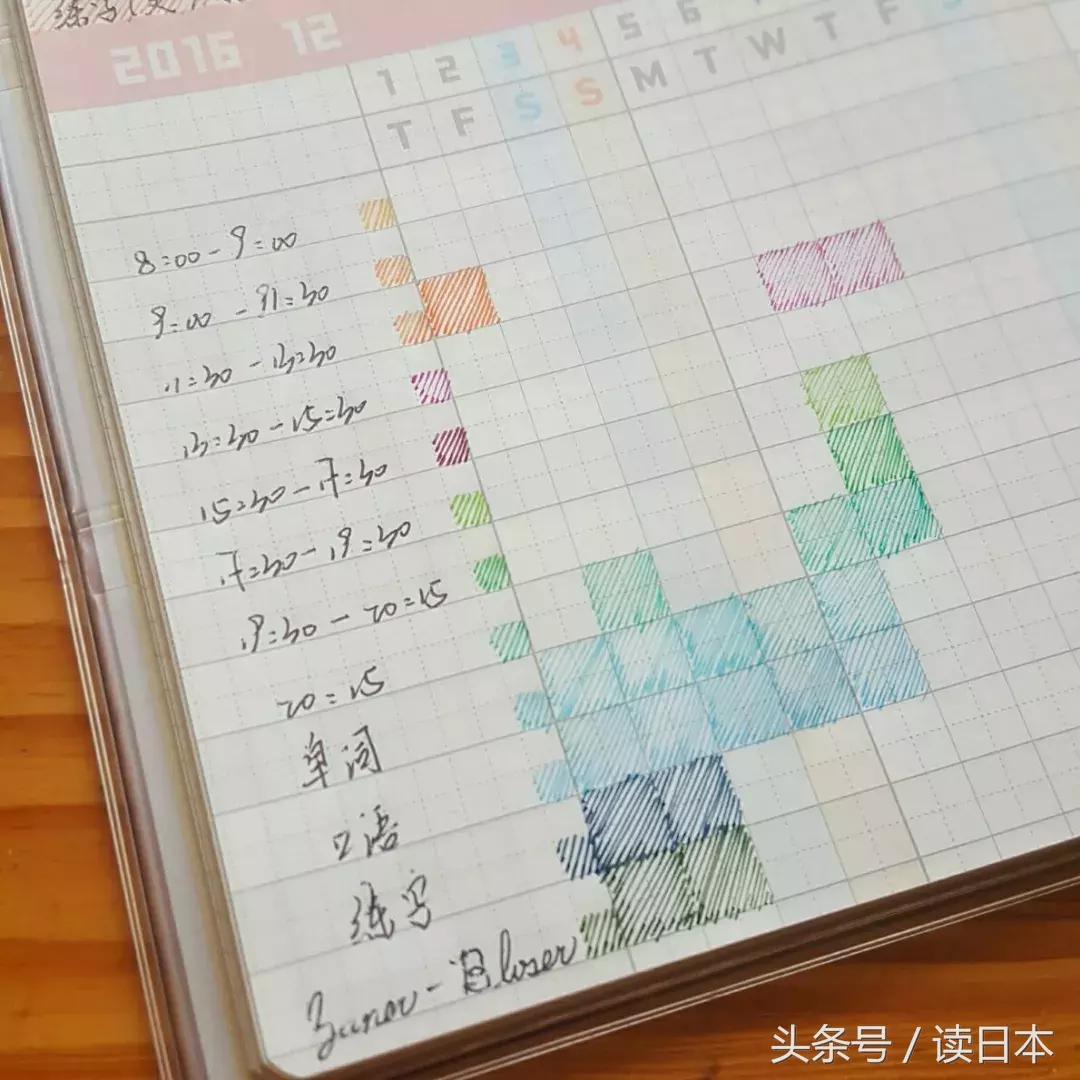 练习
2016 12
1 2 3 4 5 6
T F S S M T W T F S
8:00 - 9:00
9:00 - 11:30
11:30 - 13:30
13:30 - 15:30
15:30 - 17:30
17:30 - 19:30
19:30 - 20:15
20:15
单词
口语
练字
loser
头条号 / 读日本